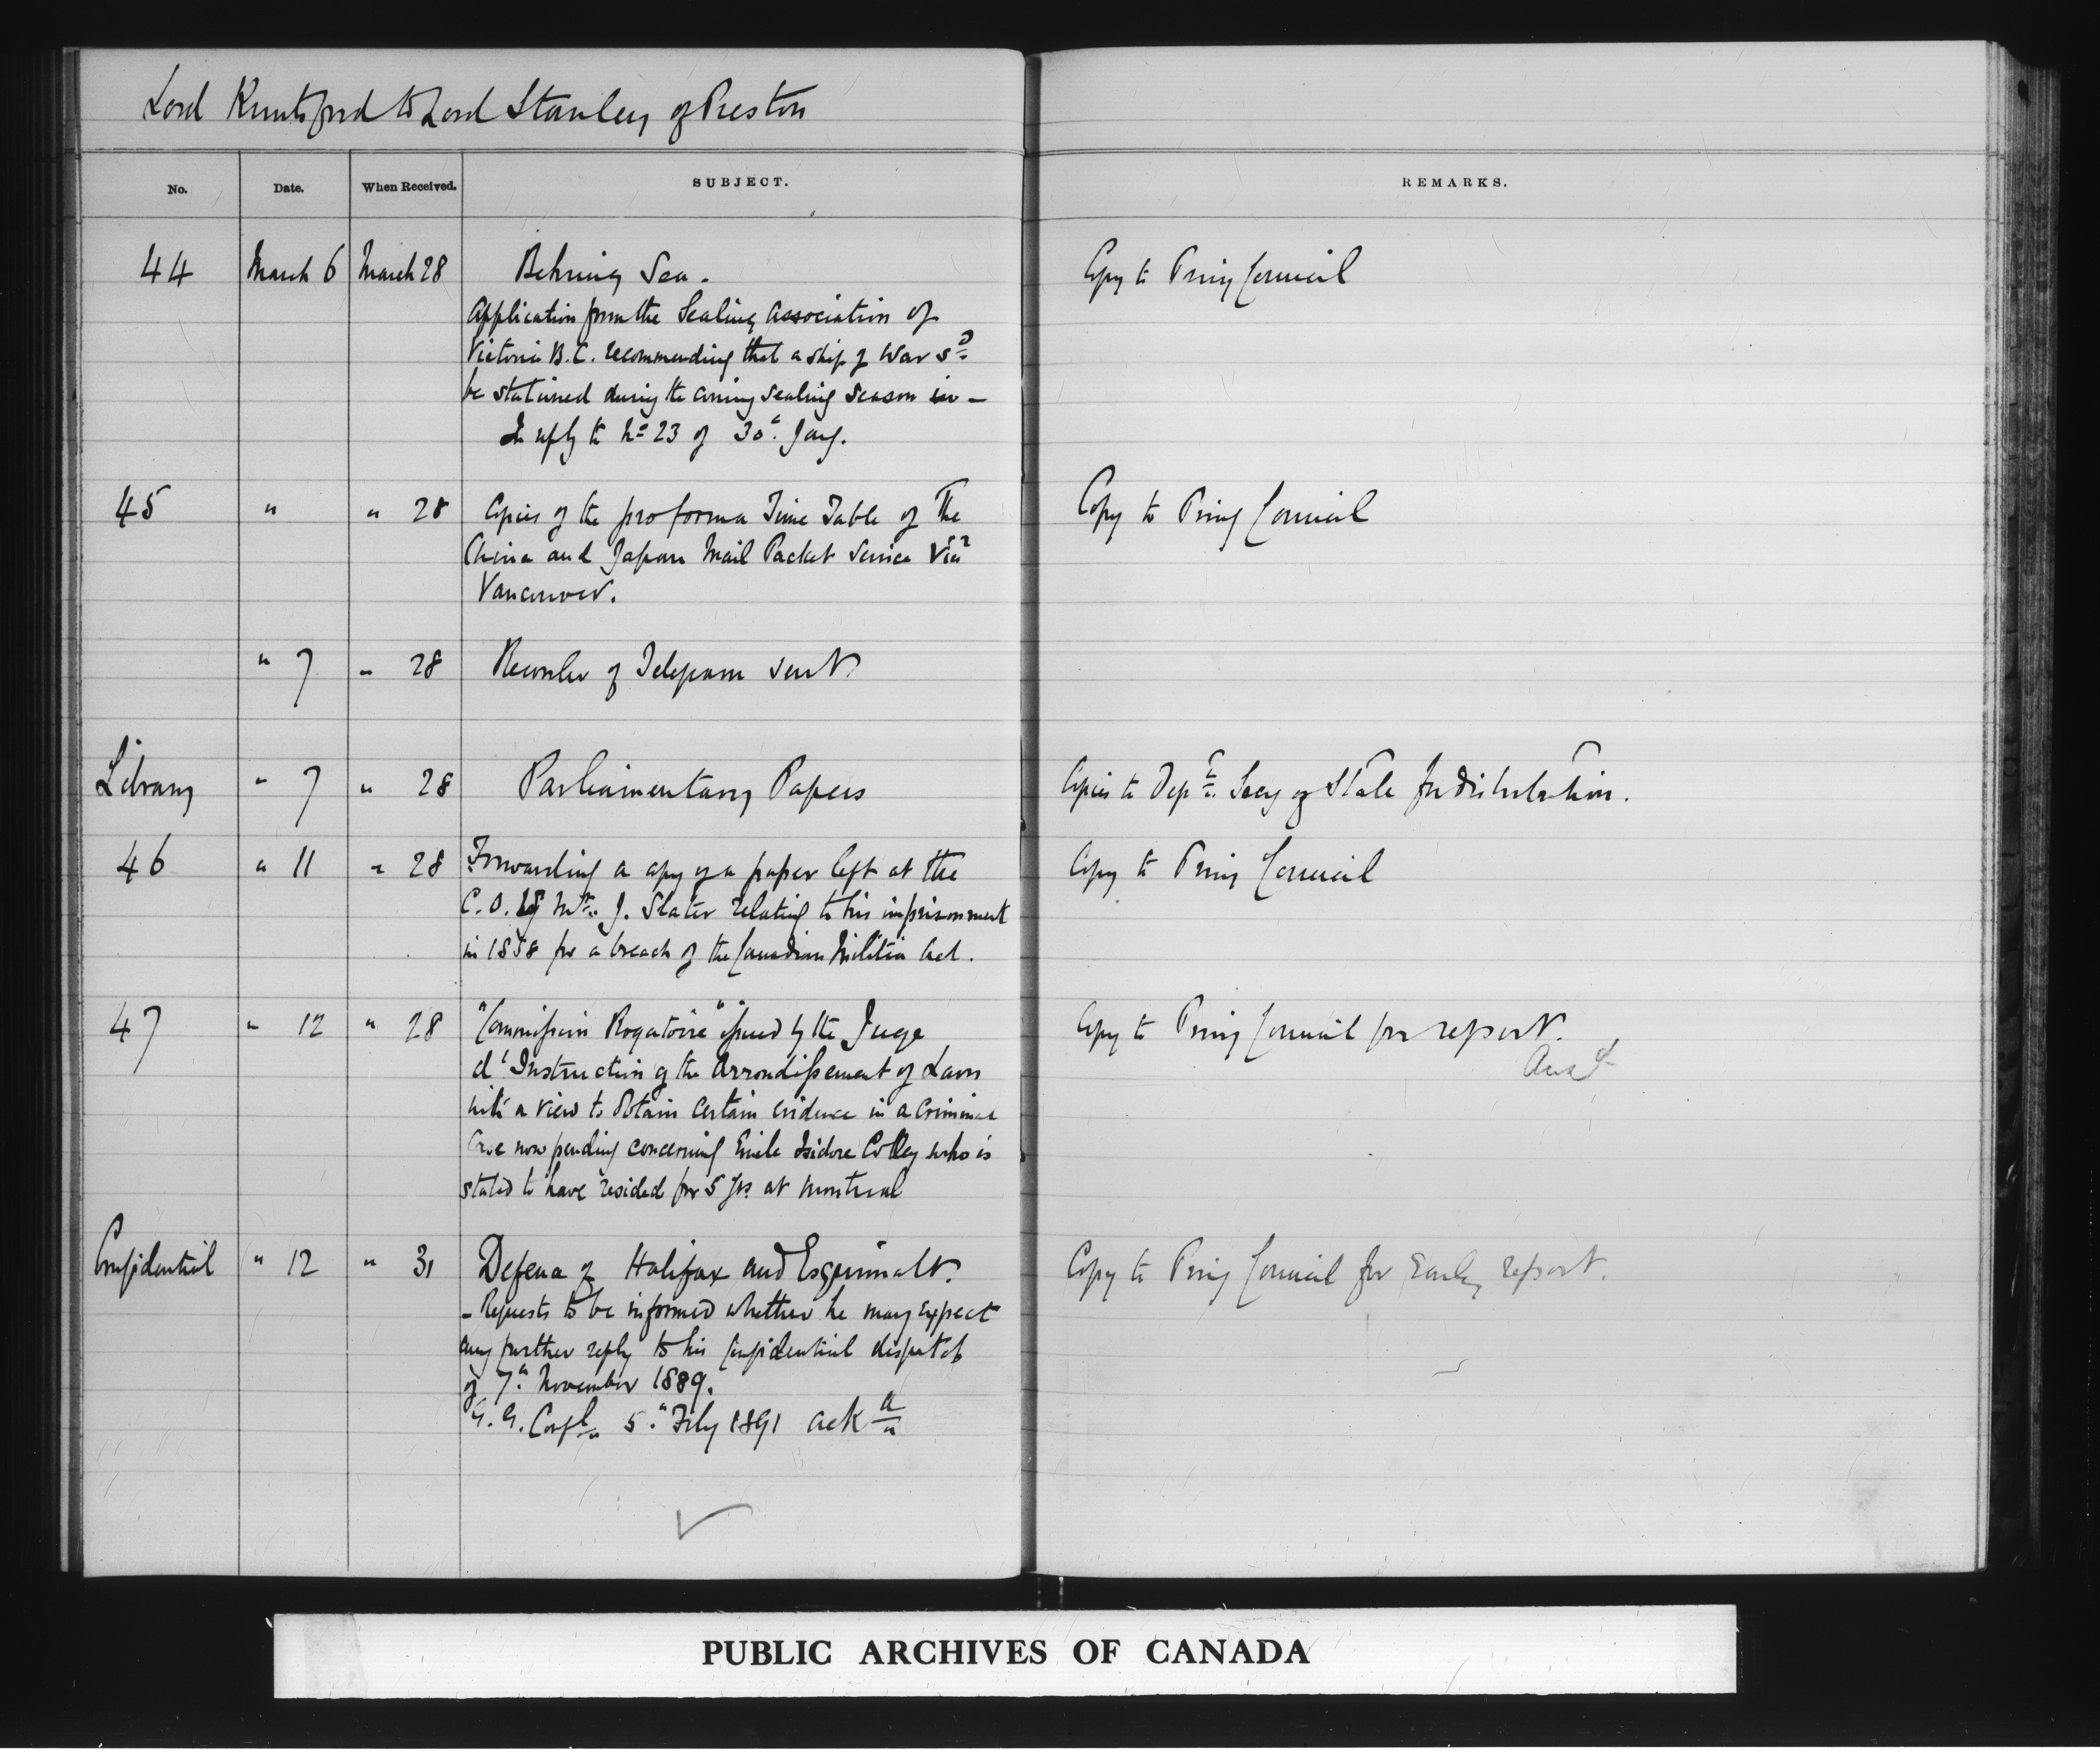 Lord Knutsford to Lord Stanley of Preston
No. Date. When Received. SUBJECT. REMARKS.
44 March 6 March 28 Behring Sea. Copy to Privy Council
Application from the Sealing Association of
Victoria B.C. recommending that a ship of War sd
be stationed during the coming sealing season in -
In reply to No 23 of 30" Jany.
45 " " 28 Copies of the pro forma Time Table of The Copy to Privy Council
China and Japan Mail Packet Service Via
Vancouver.
" 7 " 28 Recorder of Telegram sent
Library " 7 " 28 Parliamentary Papers Copies to Dept. Secy of State for distribution.
46 " 11 " 28 Forwarding a copy of a paper left at the Copy to Privy Council
C.O. by Mr. J. Slater relating to his imprisonment
in 1858 for a breach of the Canadian Militia Act.
47 " 12 " 28 "Commission Rogatoire" issued by the Juge Copy to Privy Council for report.
Ansd
d'Instruction of the Arrondissement of Laon
with a view to obtain certain evidence in a Criminal
Case now pending concerning Emile Isidore Colley who is
stated to have resided for 5 yrs at Montreal
Confidential " 12 " 31 Defence of Halifax and Esquimalt. Copy to Privy Council for Early report.
- Requests to be informed whether he may expect
any further reply to his Confidential dispatch
of 7" November 1889.
G.G. Confl 5" Feby 1891 ack
PUBLIC ARCHIVES OF CANADA